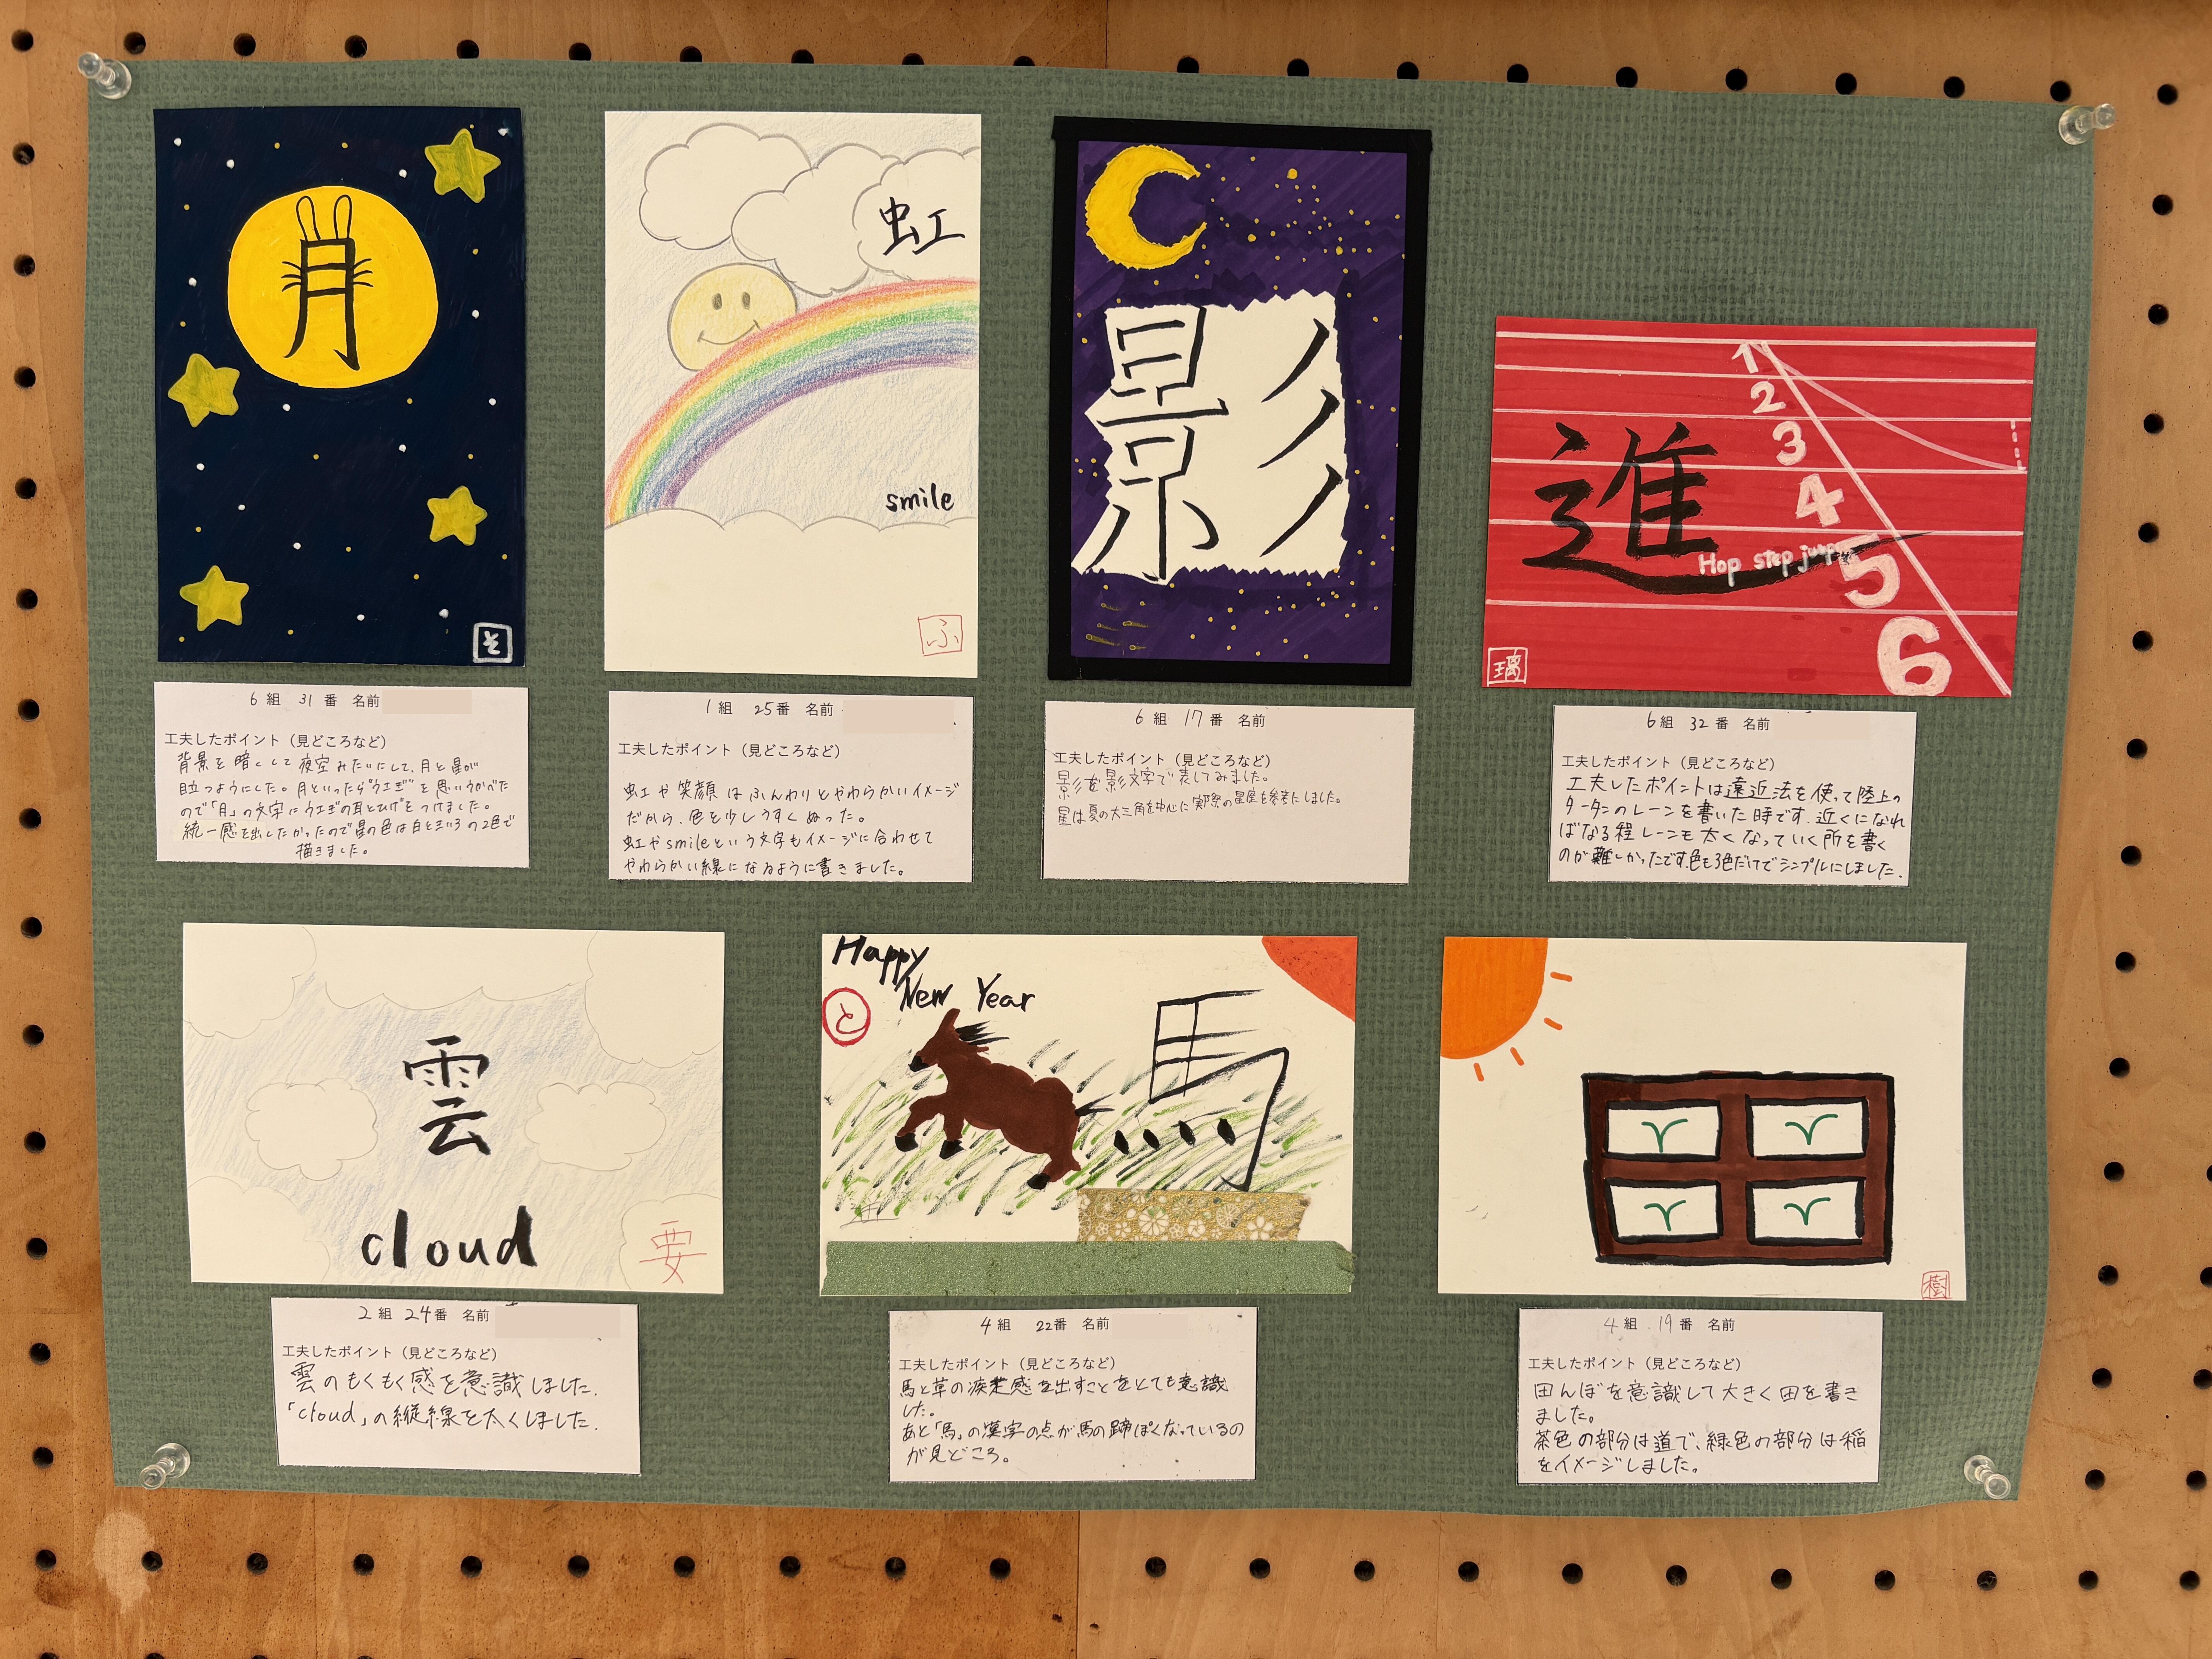 月
そ
6組 31番 名前
工夫したポイント（見どころなど）
背景を暗くして夜空みたいにして、月と星が
目立つようにした。月といったら"ウエギ"を思いうかべた
ので「月」の文字にウエギの耳とひげをつけました。
統一感を出したかったので星の色は白と黄いろの2色で
描きました。
虹
smile
ふ
1組 25番 名前
工夫したポイント（見どころなど）
虹や笑顔はふんわりとやわらかいイメージ
だから、色を少しうすくぬった。
虹やsmileという文字もイメージに合わせて
やわらかい線になるように書きました。
影
6組 17番 名前
工夫したポイント（見どころなど）
影を影文字で表してみました。
星は夏の大三角を中心に実際の星座を参考にしました。
1
2
3
4
5
6
進
Hop step jump
璃
6組 32番 名前
工夫したポイント（見どころなど）
工夫したポイントは遠近法を使って陸上の
タータンのレーンを書いた時です。近くになれ
ばなる程レーンも太くなっていく所を書く
のが難しかったです。色も3色だけでシンプルにしました。
雲
cloud
要
2組 24番 名前
工夫したポイント（見どころなど）
雲のもくもく感を意識しました。
「cloud」の縦線を太くしました。
Happy
New Year
と
馬
4組 22番 名前
工夫したポイント（見どころなど）
馬と草の疾走感を出すことをとても意識
した。
あと「馬」の漢字の点が馬の蹄ぽくなっているの
が見どころ。
田
樹
4組 19番 名前
工夫したポイント（見どころなど）
田んぼを意識して大きく田を書き
ました。
茶色の部分は道で、緑色の部分は稲
をイメージしました。